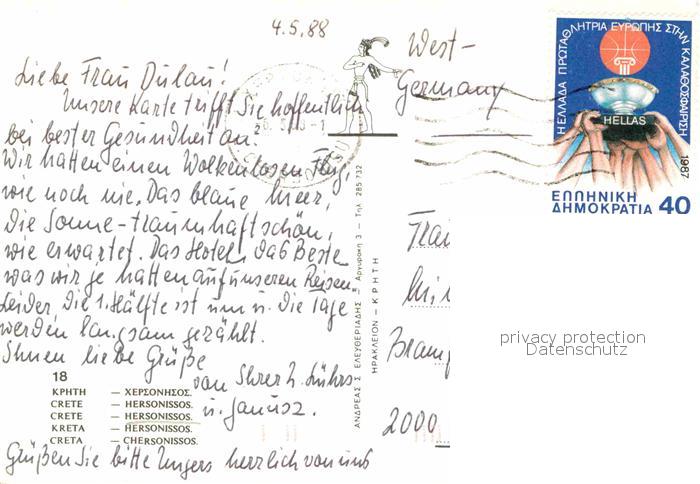 4.5.88
Liebe Frau Dulau!
Unsere Karte trifft Sie hoffentlich
bei bester Gesundheit an.
Wir hatten einen Wolkenlosen Flug,
wie noch nie. Das blaue Meer,
die Sonne - traumhaft schön,
wie erwartet. Das Hotel, das Beste
was wir je hatten auf unseren Reisen.
Leider, die 1. Hälfte ist um u. die Tage
werden langsam gezählt.
Ihnen liebe Grüße
von Ihrer
u. Janusz.
Grüßen Sie bitte herzlich von uns
18
ΚΡΗΤΗ — ΧΕΡΣΟΝΗΣΟΣ.
CRETE — HERSONISSOS.
CRETE — HERSONISSOS.
KRETA — HERSONISSOS.
CRETA — CHERSONISSOS.
ΑΝΔΡΕΑΣ Σ. ΕΛΕΥΘΕΡΙΑΔΗΣ — Αργυράκη 3 — Τηλ. 285 732
ΗΡΑΚΛΕΙΟΝ - ΚΡΗΤΗ
West-
Germany
2000
Η ΕΛΛΑΔΑ ΠΡΩΤΑΘΛΗΤΡΙΑ ΕΥΡΩΠΗΣ ΣΤΗΝ ΚΑΛΑΘΟΣΦΑΙΡΙΣΗ
HELLAS
1987
ΕΛΛΗΝΙΚΗ
ΔΗΜΟΚΡΑΤΙΑ 40
privacy protection
Datenschutz